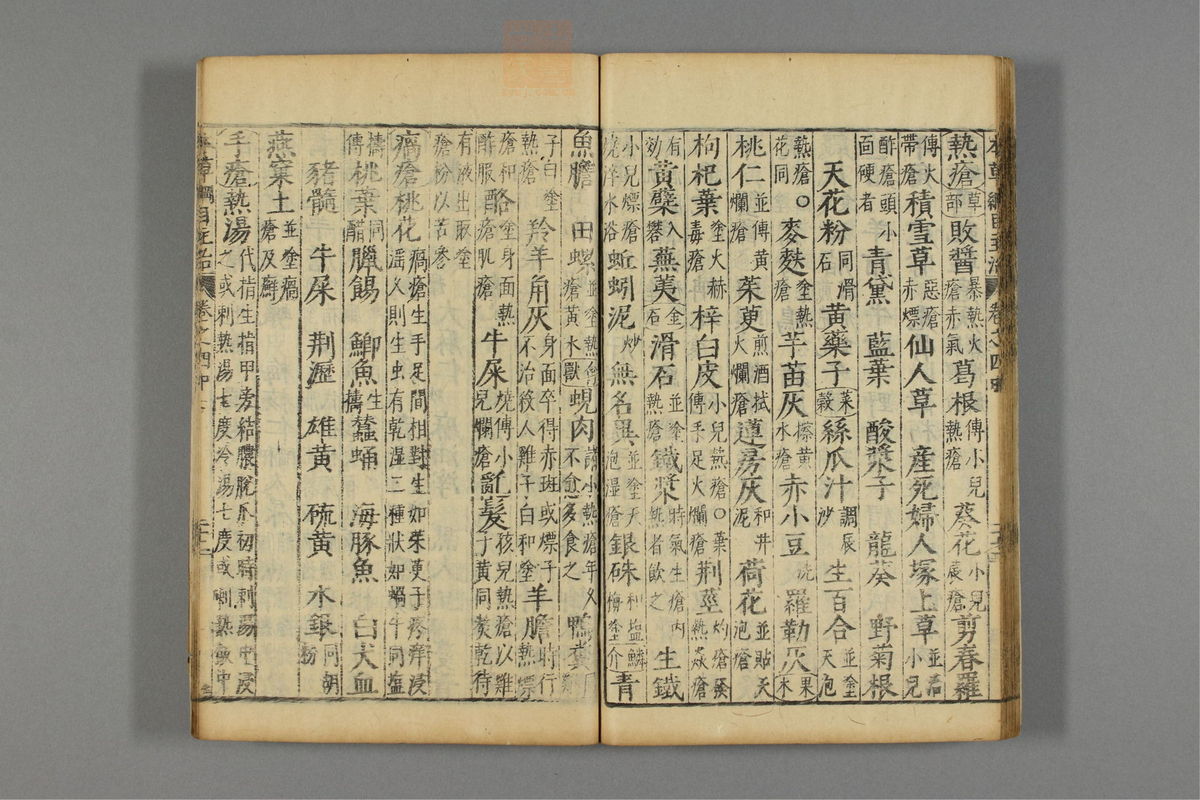 本草綱目主治 卷之四
熱瘡草部敗醬暴熱火瘡赤氣葛根傳小兒熱瘡葵花小兒蓐瘡剪春羅
傳火帶瘡積雪草惡瘡赤熛仙人草産死婦人塚上草並治小兒
酢瘡頭小面硬者青黛藍葉酸漿子龍葵野菊根
天花粉同滑石黄藥子菜穀絲瓜汁調辰沙生百合並塗天泡
熱瘡花同。麥麩塗熱瘡芋苗灰擦黄水瘡赤小豆洗羅勒灰果木
桃仁並傳黄爛瘡茱萸煎酒拭火爛瘡蓮房灰和井泥荷花並貼天泡瘡
枸杞葉塗火赫毒瘡梓白皮小兒熱瘡。葉傳手足火爛瘡荆莖灼瘡發熱焱瘡
有効黄蘗入礬蕪荑金石滑石並塗熱瘡鐵漿時氣生瘡内熱者飲之生鐵
小兒熛瘡燒淬水浴蚯蚓泥炒無名異並塗天泡湿瘡銀硃和塩梅塗鱗介青
魚膽田螺並塗熱瘡黄水禽獸蜆肉諸小熱瘡年久不愈多食之鴨糞同雞
子白塗熱瘡羚羊角灰身面卒得赤斑或熛子不治殺人雞子白和塗羊膽時行熱熛
瘡和酢服酪塗身面熱瘡肌瘡牛屎燒傳小兒爛瘡亂髮孩兒熱瘡以雞子黄同熬乾待
有液出取塗瘡粉以苦參
瘑瘡桃花瘑瘡生手足間相對生如茱萸子疼痒浸淫久則生虫有乾湿二種狀如蝸牛同塩
擣傳桃葉同醋臘餳鯽魚生擣蠶蛹海豚魚白犬血
豬髓牛屎荆瀝雄黄硫黄水銀同胡粉
燕窠土並塗瘑瘡及癬
手瘡熱湯代指生指甲旁結膿脱爪初時刺湯中浸之或刺熱湯七度冷湯七度或刺熱飯中
本草綱目主治 卷之四